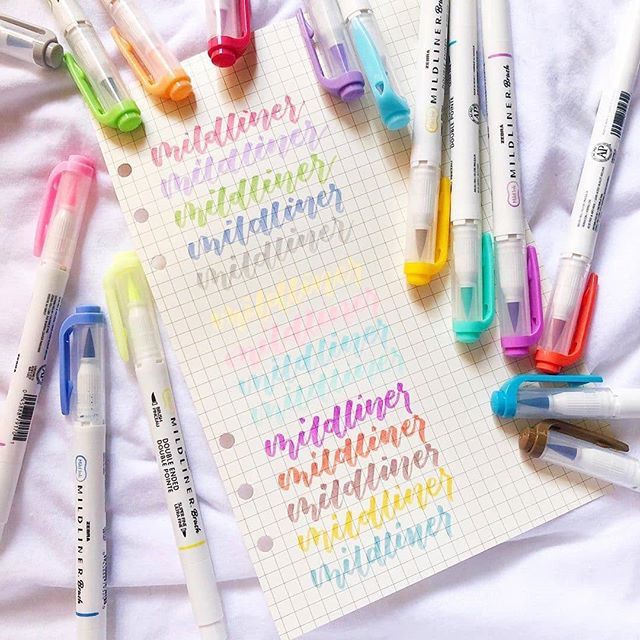 mildliner
mildliner
mildliner
mildliner
mildliner
mildliner
mildliner
mildliner
mildliner
mildliner
mildliner
mildliner
mildliner
mildliner
MILDLINER Brush
DOUBLE ENDED
DOUBLE POINTE
ZEBRA
MILDLINER Brush
ZEBRA
MILDLINER Brush
MILDLINER
DOUBLE POINTE
ZEBRA
AP